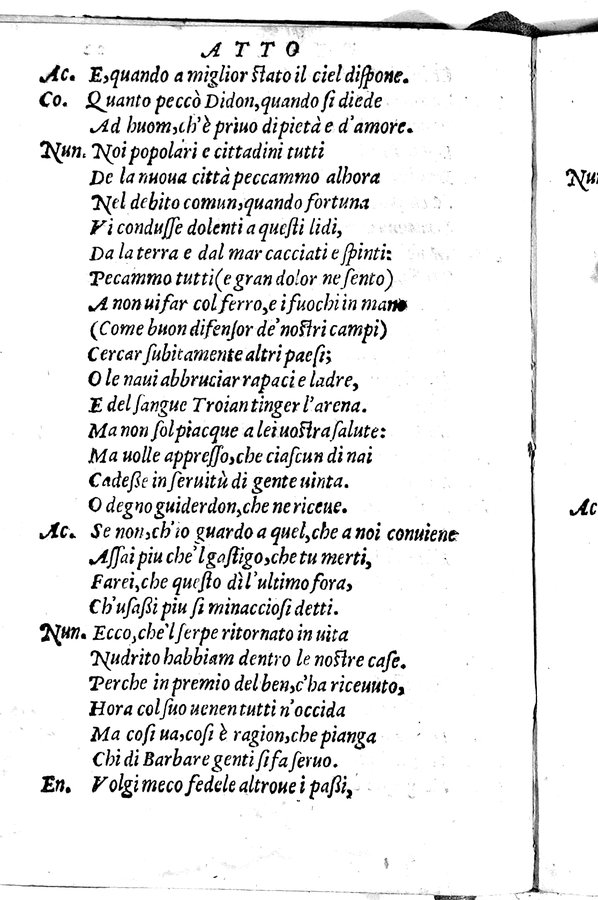 ATTO
Ac. E, quando a miglior ſtato il ciel diſpone.
Co. Quanto peccò Didon, quando ſi diede
Ad huom, ch'è priuo di pietà e d'amore.
Nun. Noi popolari e cittadini tutti
De la nuoua città peccammo alhora
Nel debito comun, quando fortuna
Vi conduſſe dolenti a queſti lidi,
Da la terra e dal mar cacciati e ſpinti:
Peccammo tutti (e gran dolor ne ſento)
A non ui far col ferro, e i fuochi in mano
(Come buon difenſor de' noſtri campi)
Cercar ſubitamente altri paeſi;
O le naui abbruciar rapaci e ladre,
E del ſangue Troian tinger l'arena.
Ma non ſol piacque a lei uoſtra ſalute:
Ma uolle appreſſo, che ciaſcun di nai
Cadeße in ſeruitù di gente uinta.
O degno guiderdon, che ne riceue.
Ac. Se non, ch'io guardo a quel, che a noi conuiene
Aſſai piu che'l gaſtigo, che tu merti,
Farei, che queſto dì l'ultimo fora,
Ch'uſaßi piu ſi minaccioſi detti.
Nun. Ecco, che'l ſerpe ritornato in uita
Nudrito habbiam dentro le noſtre caſe.
Perche in premio del ben, c'ha riceuuto,
Hora col ſuo uenen tutti n'occida
Ma coſi ua, coſi è ragion, che pianga
Chi di Barbare genti ſi fa ſeruo.
En. Volgi meco fedele altroue i paßi,
Nun
Ac